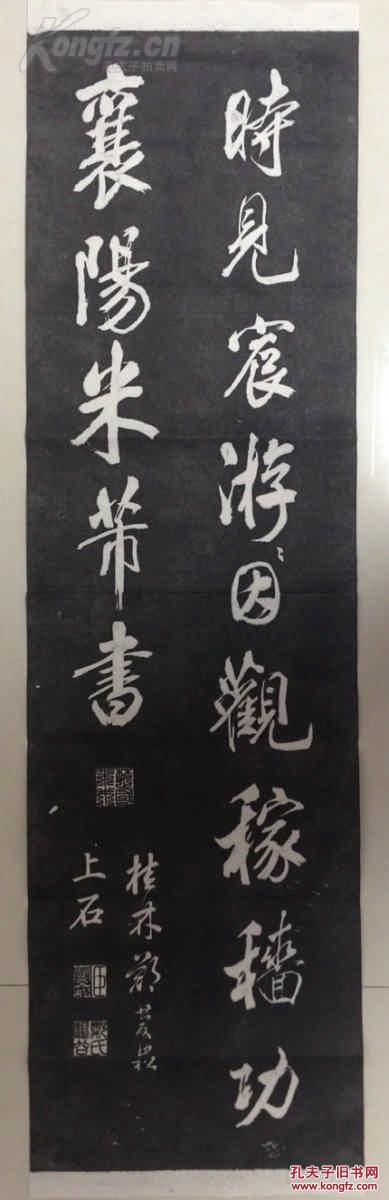 時見宸游因觀稼穡功
襄陽米芾書
桂林鄭
上石
Kongfz.cn
孔夫子拍卖网
孔夫子旧书网
www.kongfz.com